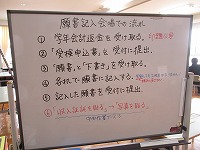 願書記入会場での流れ
① 学年会計返金を受け取る。
② 「受検申込書」を受付に提出。
③ 「願書」と「下書き」を受け取る。
④ 各机で願書に記入する。
⑤ 記入した願書を受付に提出。
⑥ 「収入証紙を貼る」→写真を貼る。